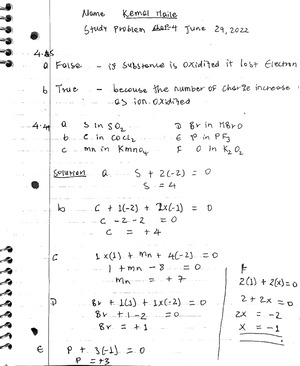 Name Kemal Haile
Study Problem 4 June 29, 2022
4.45
a False - if substance is oxidized it lost Electron
b True - because the number of charge increase
as ion oxidized
4.49 a S in SO2 D Br in HBrO
b C in COCl2 E P in PF3
c mn in KMnO4 F O in K2O2
Solution a S + 2(-2) = 0
S = 4
b C + 1(-2) + 2x(-1) = 0
C - 2 - 2 = 0
C = + 4
C 1x(1) + Mn + 4(-2) = 0
1 + mn - 8 = 0
mn = + 7
D Br + 1(1) + 1x(-2) = 0
Br + 1 - 2 = 0
Br = + 1
E P + 3(-1) = 0
P = +3
F
2(1) + 2(x) = 0
2 + 2x = 0
2x = -2
x = -1